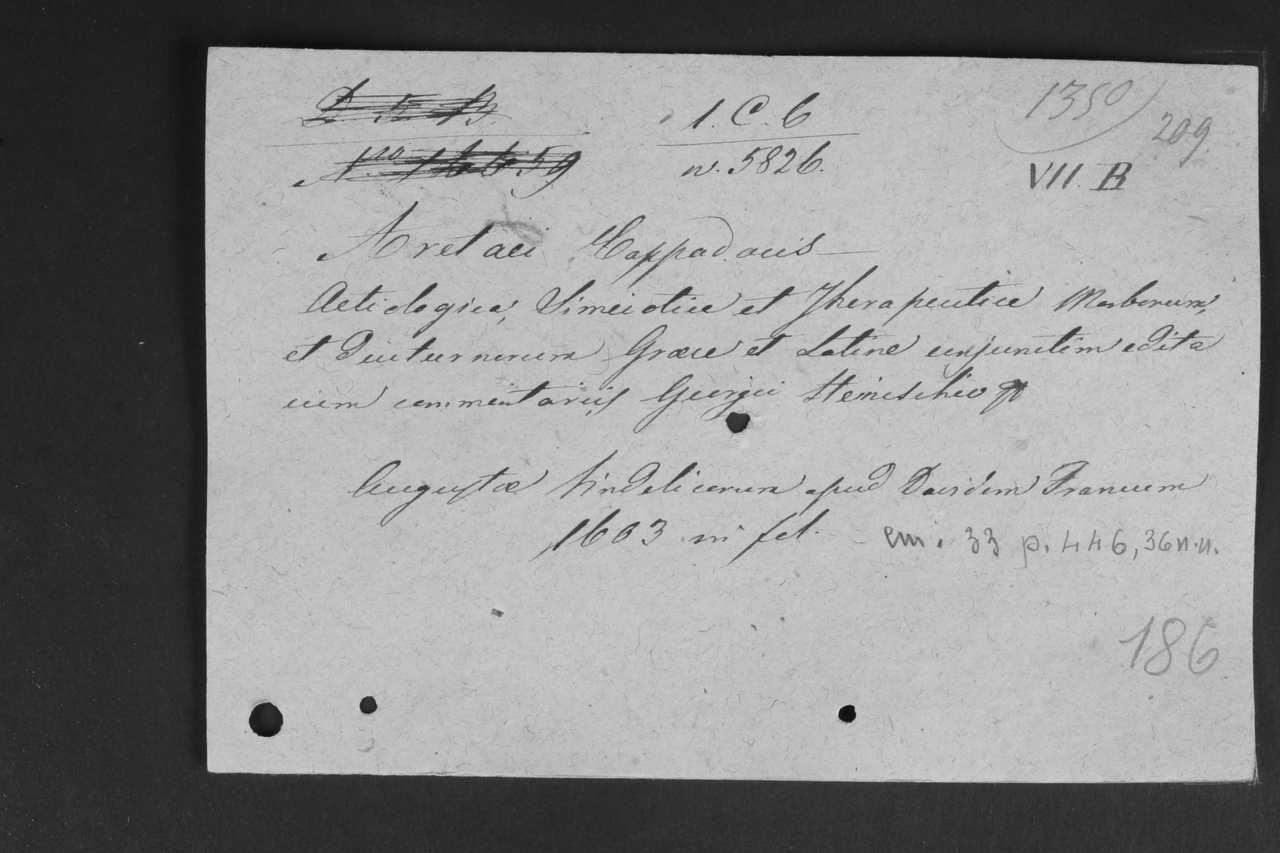 1. C. 6
1350
209
n. 5826.
VII B
Aretaei Cappadocis
Aetiologica, Simeiotice et Therapeutice Morborum,
et diuturnorum Græce et Latine conjunctim edita
cum commentariis Georgii Henischio
Augustæ Vindelicorum apud Davidem Francum
1603 in fol.
cm. 33 p. 446, 36 n.n.
186